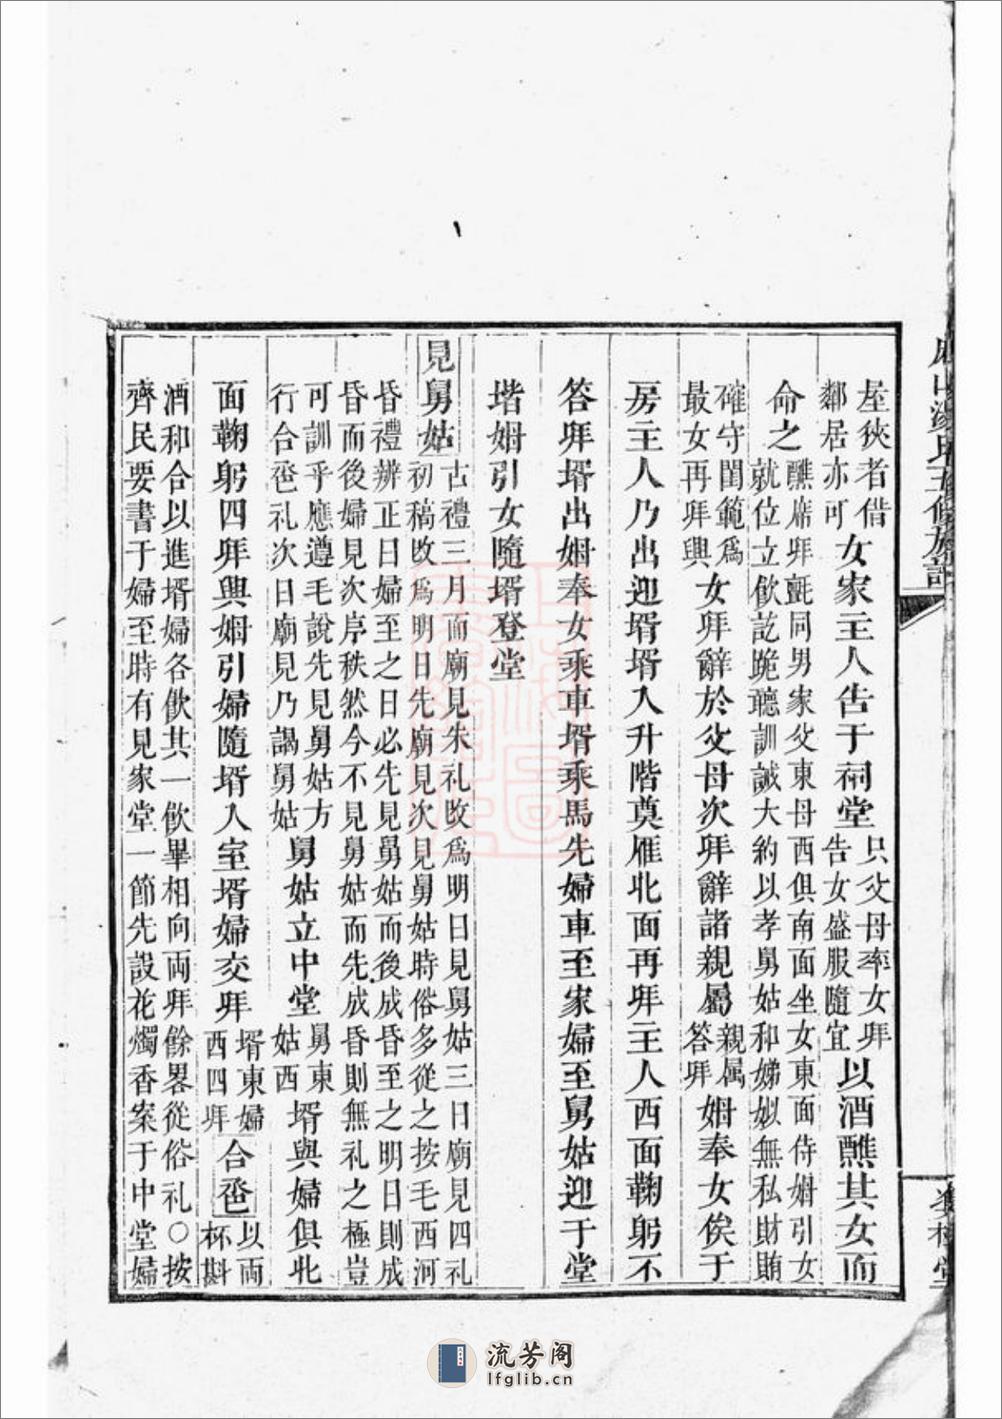 屋狹者借
鄰居亦可
女家主人告于祠堂
只父母率女拜
告女盛服隨宜
以酒醮其女而
命之
醮席拜氈同男家父東母西俱南面坐女東面侍姻引女
就位立飲訖跪聽訓誡大約以孝舅姑和娣姒無私財賄
確守閨範爲
最女再拜興
女拜辭於父母次拜辭諸親屬
親属
答拜
姻奉女俟于
房主人乃出迎壻壻入升階奠雁北面再拜主人西面鞠躬不
答拜壻出姻奉女乘車壻乘馬先婦車至家婦至舅姑迎于堂
堦姻引女隨壻登堂
見舅姑
古禮三月而廟見朱礼改爲明日見舅姑三日廟見四礼
初稿改爲明日先廟見次見舅姑時俗多從之按毛西河
昏禮辨正曰婦至之日必先見舅姑而後成昏至之明日則成
昏而後婦見次序秩然今不見舅姑而先成昏則無礼之極豈
可訓乎應遵毛說先見舅姑方
行合卺礼次日廟見乃謁舅姑
舅姑立中堂
舅東
姑西
壻與婦俱北
面鞠躬四拜興姻引婦隨壻入室壻婦交拜
壻東婦
西四拜
合卺
以兩
杯斟
酒和合以進壻婦各飲其一飲畢相向兩拜餘畧從俗礼○按
齊民要書于婦至時有見家堂一節先設花燭香案于中堂婦
氏五修族譜
流芳阁
lfglib.cn